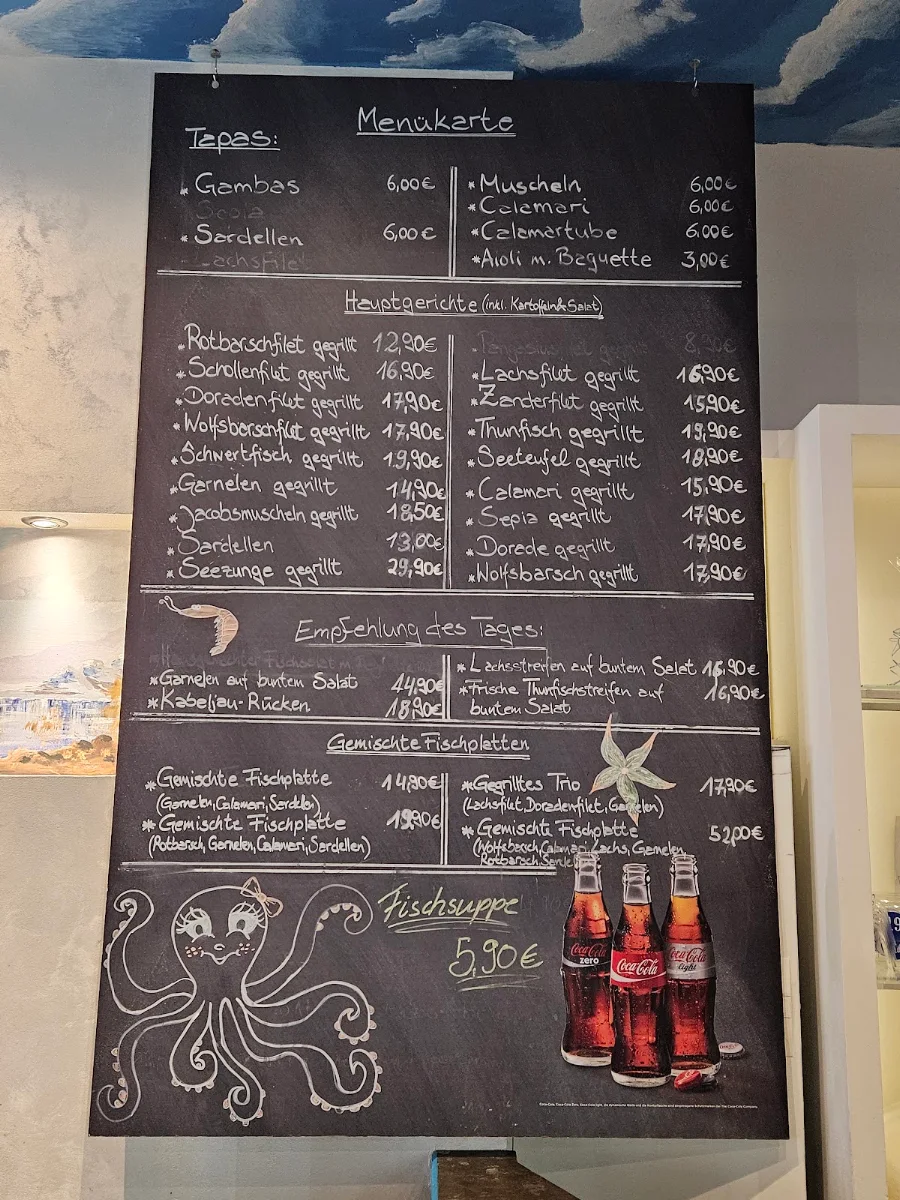 Menükarte
Tapas:
* Gambas 6,00€
Sepia
* Sardellen 6,00€
Lachsfilet
* Muscheln 6,00€
* Calamari 6,00€
* Calamartube 6.00€
* Aioli m. Baguette 3,00€
Hauptgerichte (inkl. Kartoffeln & Salat)
* Rotbarschfilet gegrillt 12,90€
* Schollenfilet gegrillt 16,90€
* Doradenfilet gegrillt 17,90€
* Wolfsbarschfilet gegrillt 17,90€
* Schwertfisch gegrillt 19,90€
* Garnelen gegrillt 14,90€
* Jacobsmuscheln gegrillt 18,50€
* Sardellen 13,00€
* Seezunge gegrillt 29,90€
8,90€
* Lachsfilet gegrillt 16,90€
* Zanderfilet gegrillt 15,90€
* Thunfisch gegrillt 19,90€
* Seeteufel gegrillt 18,90€
* Calamari gegrillt 15,90€
* Sepia gegrillt 17,90€
* Dorade gegrillt 17,90€
* Wolfsbarsch gegrillt 17,90€
Empfehlung des Tages:
* Garnelen auf buntem Salat 14,90€
* Kabeljau-Rücken 18,90€
* Lachsstreifen auf buntem Salat 16,90€
* Frische Thunfischstreifen auf 16,90€
buntem Salat
Gemischte Fischplatten
* Gemischte Fischplatte 14,90€
(Garnelen, Calamari, Sardellen)
* Gemischte Fischplatte 19,90€
(Rotbarsch, Garnelen, Calamari, Sardellen)
* Gegrilltes Trio 17,90€
(Lachsfilet, Doradenfilet, Garnelen)
* Gemischte Fischplatte 52,00€
(Wolfsbarsch, Calamari, Lachs, Garnelen,
Rotbarsch, Sarde
Fischsuppe
5,90€
Coca-Cola
zero
Coca-Cola
Coca-Cola
light